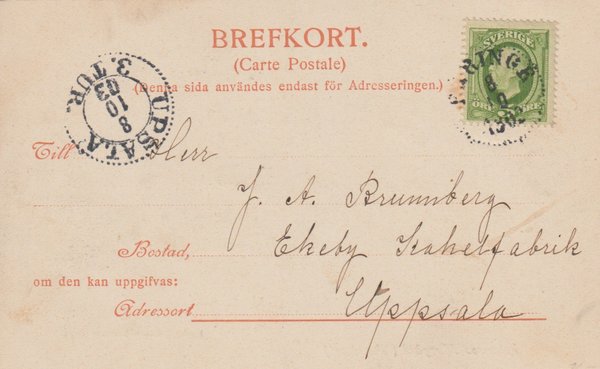 BREFKORT.
(Carte Postale)
(Denna sida användes endast för Adresseringen.)
SVERIGE
ÖRE
8
10
1903
UPSALA
8
10
03
3. TUR.
Till Herr
J. A. Brunnberg
Bostad, Ekeby Kakelfabrik
om den kan uppgifvas:
Adressort Uppsala